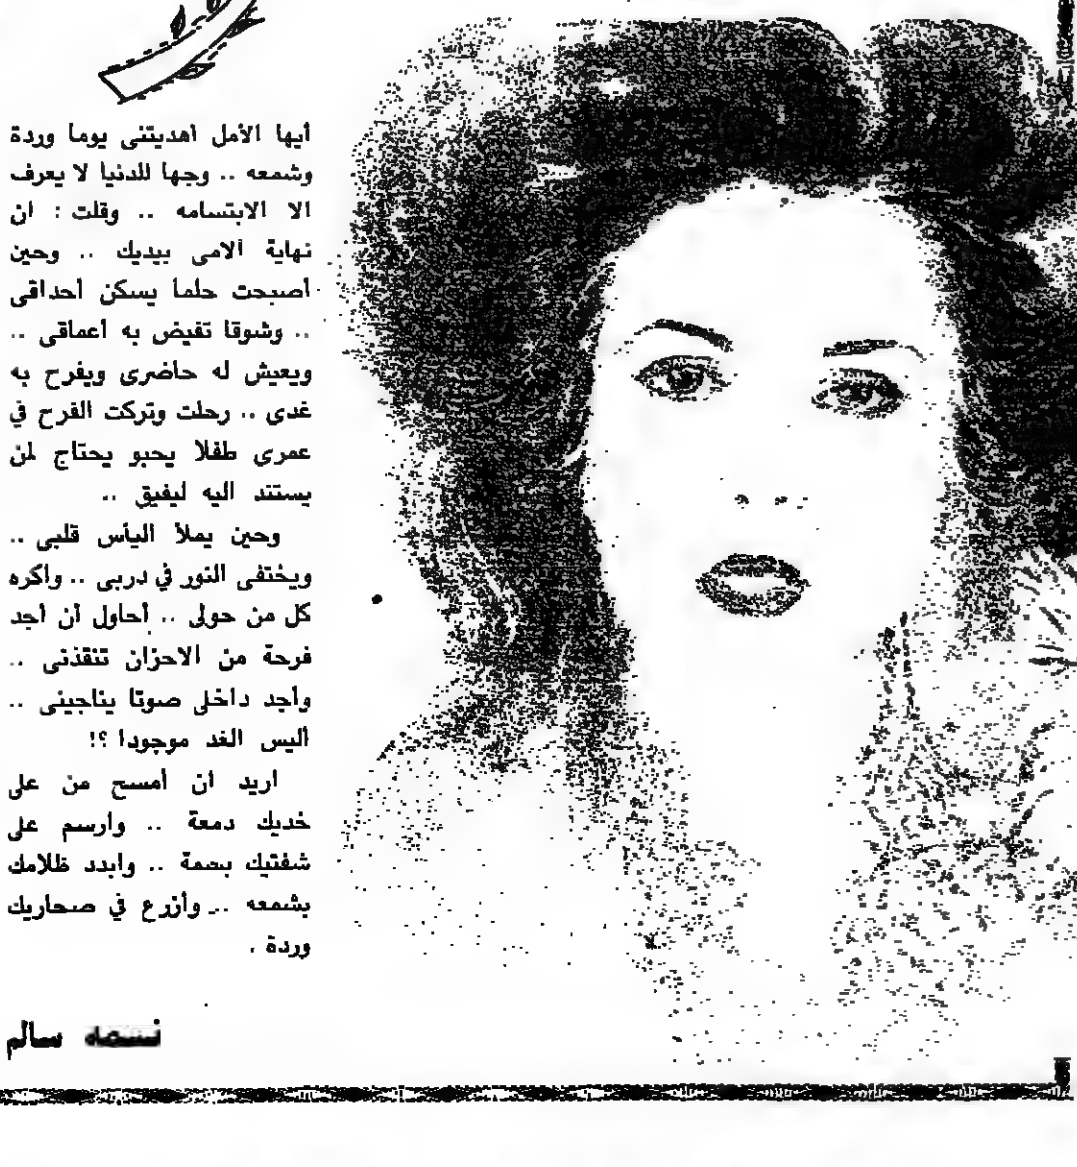 أيها الأمل أهديتنى يوما وردة
وشمعه .. وجها للدنيا لا يعرف
الا الابتسامه .. وقلت : ان
نهاية آلامى بيديك .. وحين
أصبحت حلما يسكن أحداقى
.. وشوقا تفيض به أعماقى ..
ويعيش له حاضرى ويفرح به
غدى .. رحلت وتركت الفرح في
عمرى طفلا يحبو يحتاج لمن
يستند اليه ليفيق ..
وحين يملأ اليأس قلبى ..
ويختفى النور في دربى .. واكره
كل من حولى .. أحاول أن أجد
فرحة من الاحزان تنقذنى ..
وأجد داخلى صوتا يناجينى ..
أليس الغد موجودا ؟!
اريد ان أمسح من على
خديك دمعة .. وارسم على
شفتيك بسمة .. وابدد ظلامك
بشمعه .. وأزرع في صحاريك
وردة .
نسمه سالم